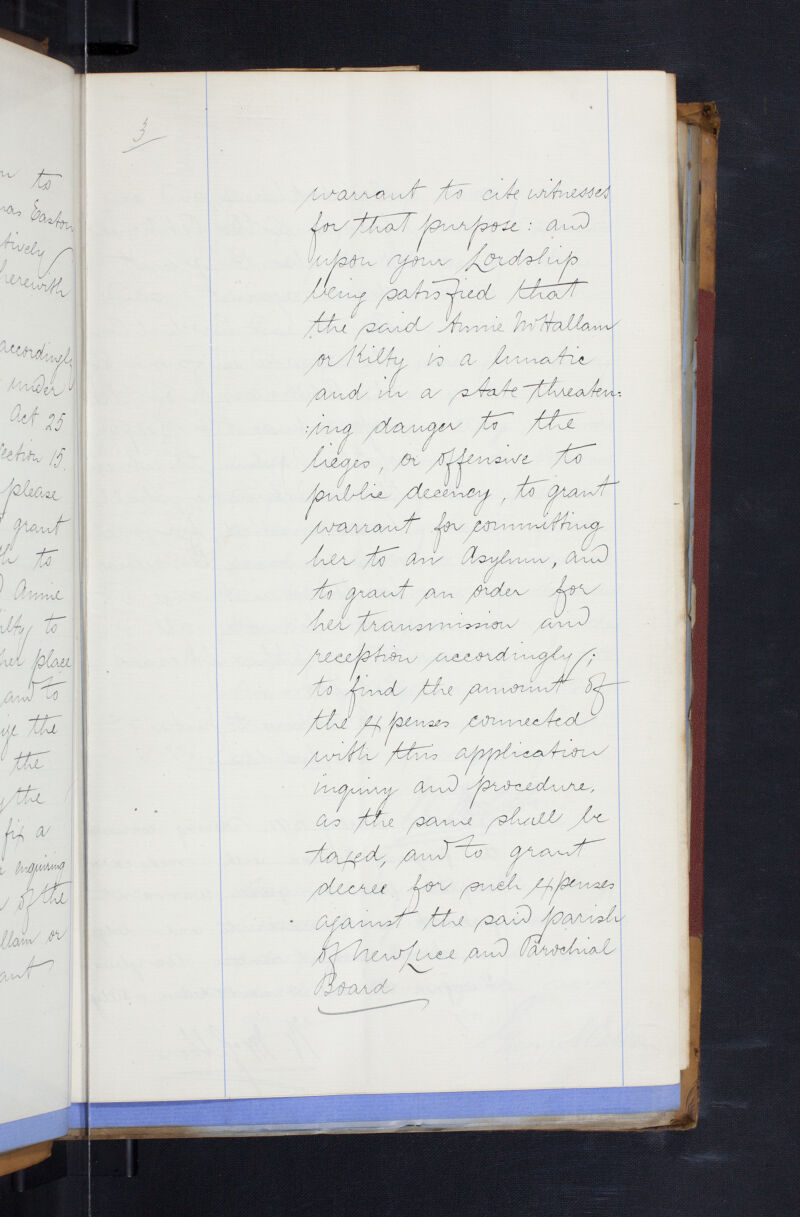 to
Easton
tively
herewith
accordingly
under
Act 25
ection 15.
please
grant
to
Annie
ilty to
her place
and to
the
the
the
fix a
enquiring
of the
llam or
ant
3
warrant to cite witnesses
for that purpose : and
upon your Lordship
being satisfied that
the said Annie McHallam
or Kilty is a lunatic
and in a state threaten:
:ing danger to the
lieges, or offensive to
public decency, to grant
warrant for committing
her to an Asylum, and
to grant an order for
her transmission and
reception accordingly;
to find the amount of
the expenses connected
with this application
inquiry and procedure,
as the same shall be
taxed, and to grant
decree for such expenses
against the said parish
of New Luce and Parochial
Board